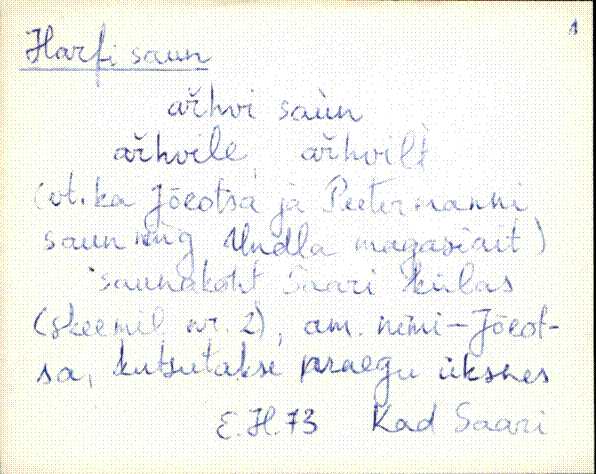 1
Harfi saun
ařhvi saùn
ařhvile, ařhvilt̀
(vt. ka Jõeotsa ja Peetermanni
saun ning Undla magasiait)
saunakoht Saari külas
(skeemil nr. 2), am. nimi - Jõeot-
sa, kutsutakse praegu üksnes
E.H.73 Kad Saari